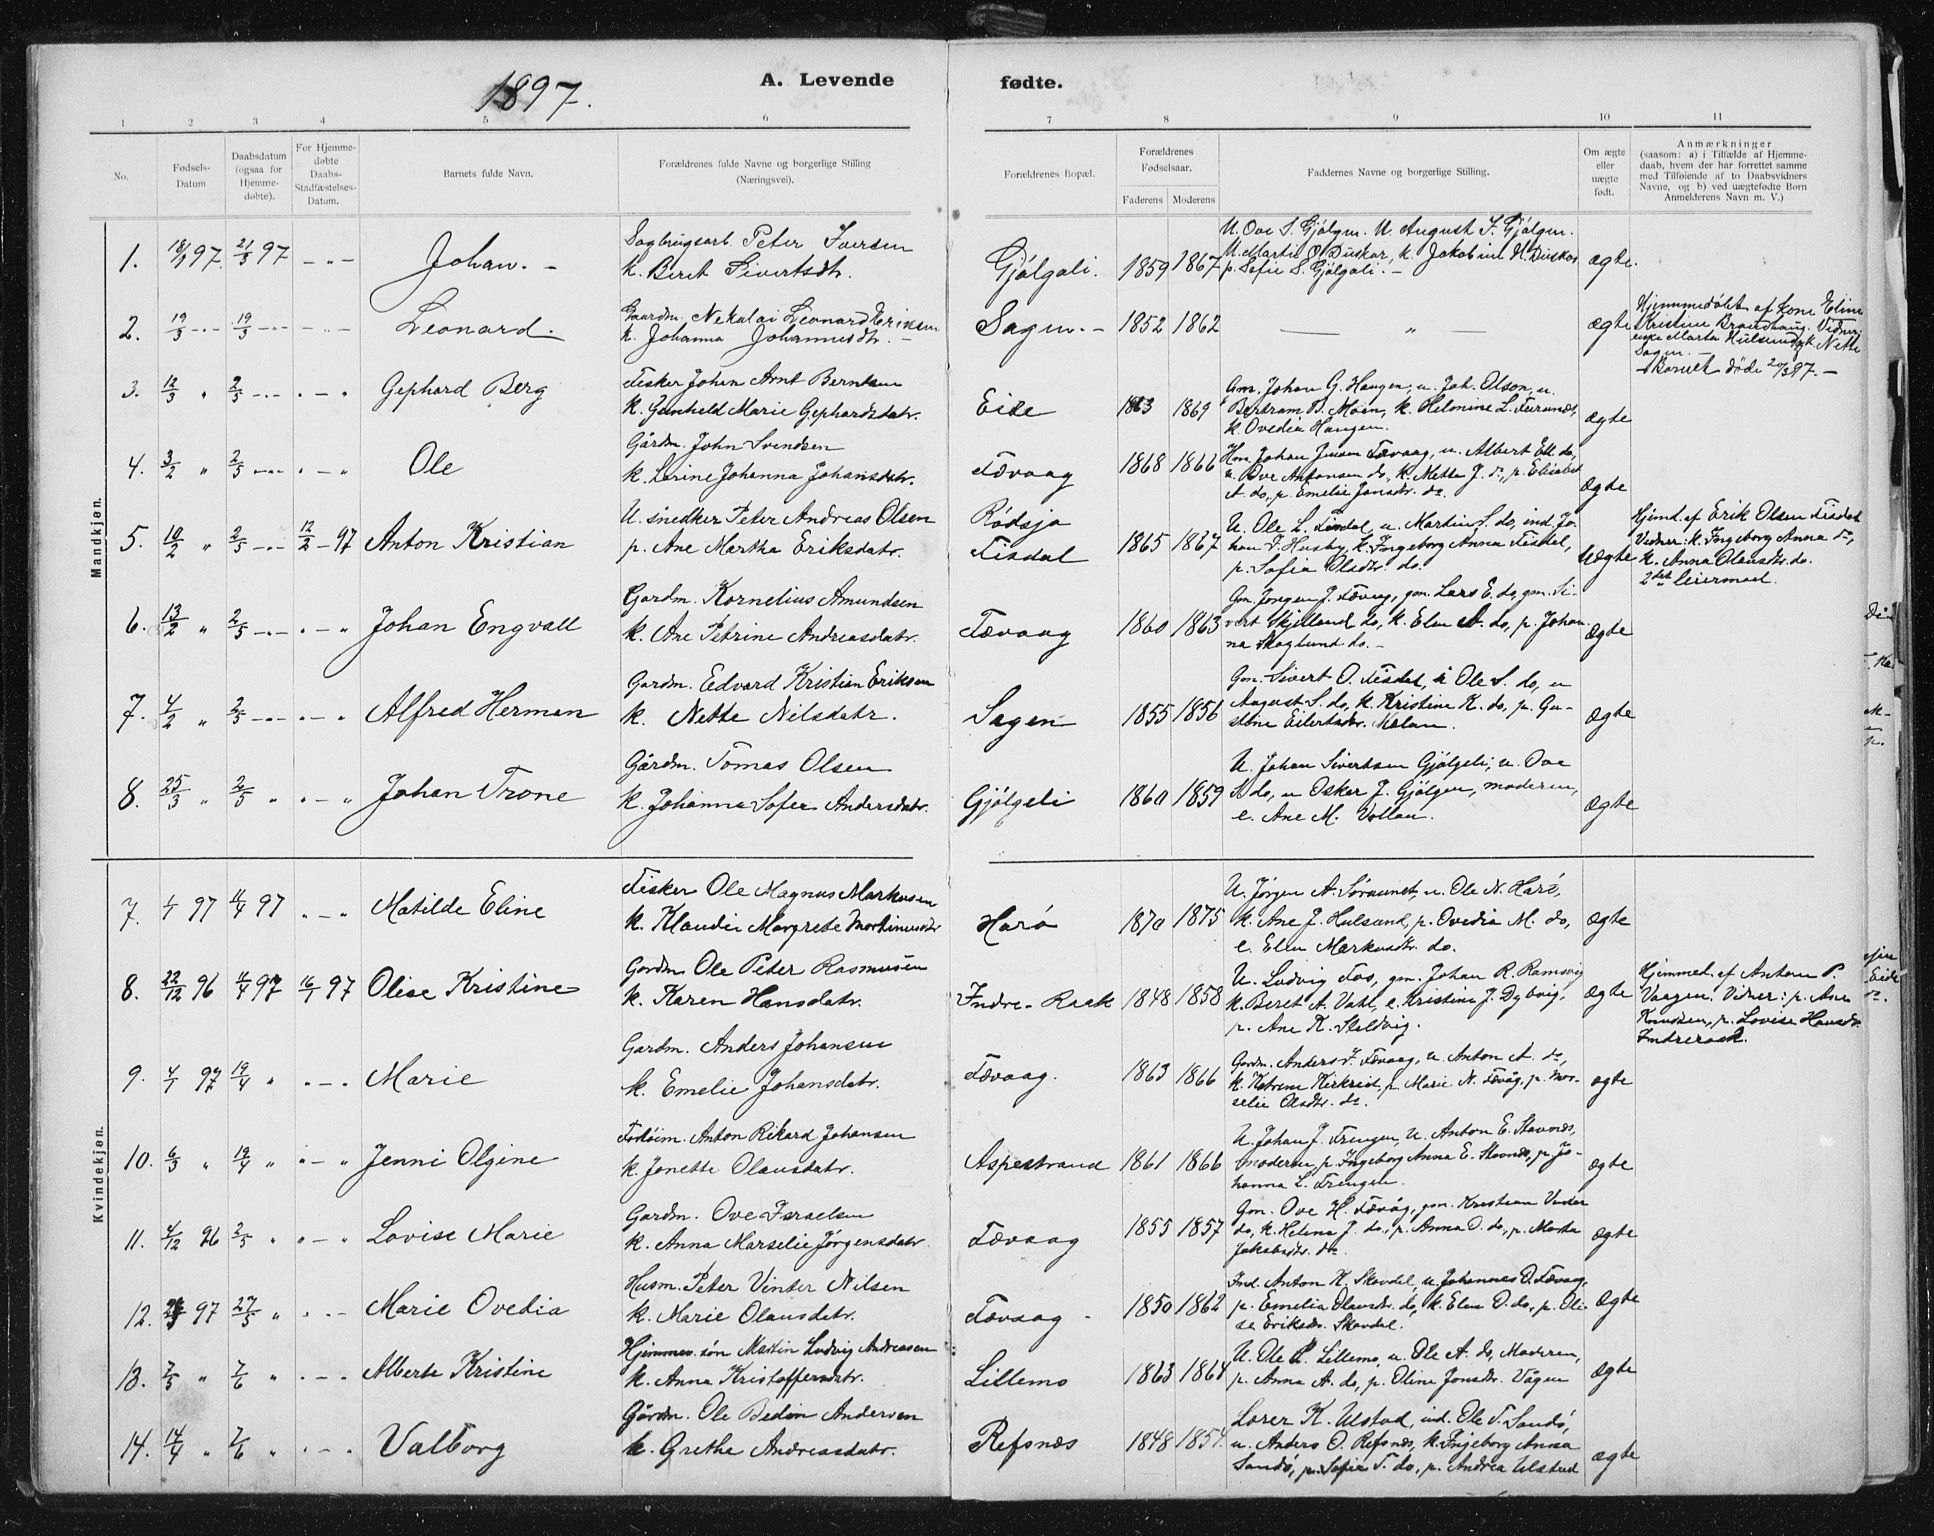 1897. A. Levende fødte.
1 2 3 4 5 6 7 8 9 10 11
No.
Fødsels-Datum
Daabsdatum (ogsaa for Hjemme-døbte).
For Hjemme-døbte Daabs-Stadfæstelses-Datum.
Barnets fulde Navn.
Forældrenes fulde Navne og borgerlige Stilling (Næringsvei).
Forældrenes Bopæl.
Forældrenes Fødselsaar.
Faderens Moderens
Faddernes Navne og borgerlige Stilling.
Om ægte eller uægte født.
Anmærkninger
(saasom: a) i Tilfælde af Hjemme-
daab, hvem der har forrettet samme
med Tilføiende af to Daabsvidners
Navne, og b) ved uægtefødte Born
Anmelderens Navn m. V.)
Mandkjøn.
1. 18/1 97. 21/3 97 - „ - Johan. -
Sagbrugsarb. Peter Iversen
k. Beret Sivertsdtr.
Gjølgali. 1859 1867
U. Ove S. Gjølgen. U. August J. Gjølgen.
U. Martin O. Duskar, k. Jakobine H. Duskar
p. Sofie S. Gjølgali. -
ægte.
2. 19/3 - „ - 19/3 - „ - - „ - Leonard.
Gaardm. Nekolai Leonard Eriksen
k. Johanna Johannesdtr. -
Sagen. - 1852 1862 — „ — ægte
Hjemmedøbt af kone Eline
Kristine Brandhaug. Vidner:
enke Marta Hulsund, k. Nette
Sagen. -
Barnet døde 20/3 97. -
3. 12/3 „ 2/5 - „ - „ - „ Gephard Berg
Fisker Johan Arnt Berntsen
k. Gunheld Marie Gephardsdatr.
Eide 1863 1869
Gm. Johan G. Haugen, u. Joh. Olson, u.
Bertram B. Moen, k. Helmine L.
k. Ovedia Haugen.
ægte
4. 3/2 „ 2/5 - „ - „ - „ Ole
Gårdm. John Svendsen
k. Lorine Johanna Johansdatr.
Tævaag 1868 1866
Hm. Johan Jensen Tævaag, u. Albert do,
u. Ove Antonsen do, k. Mette J. do, p. Elisabet
A. do, p. Emelie Jonsdtr. do.
Ægte
5. 10/2 „ 2/5 - „ - 12/2 - 97 Anton Kristian
U. snedker Peter Andreas Olsen
p. Ane Martha Eriksdatr.
Rødsjø
Tisdal 1865 1867
U. Ole L. Tindal, u. Martin S. do, ind. Jo-
han J. Husby, k. Ingeborg Anna Tisdal,
p. Sofia Olsdtr. do.
Uægte
Hjemd. af Erik Olsen Tisdal
Vidner: k. Ingeborg Anna do,
k. Anna Olausdtr. do.
2det leiermaal.
6. 13/2 „ 2/5 - „ - „ - „ Johan Engvald
Gardm. Kornelius Amundsen
k. Ane Petrine Andreasdatr.
Tævaag 1860 1863
Gm. Jørgen J. Tævaag, gm. Lars E. do, gm. Si-
vert Skjelland do, k. Elen A. do, p. Johan
na Skoglund do. -
ægte
7. 4/2 „ 2/5 - „ - „ - „ Alfred Herman
Gardm. Edvard Kristian Eriksen
k. Nette Nilsdatr.
Sagen 1855 1856
Gm. Sivert O. Tisdal, u Ole S. do, u
August S. do, k. Kristine K. do, p. Gu-
stine Eilertsdtr. Melan.
Ægte
8. 25/3 „ 2/5 „ „ - „ Johan Trone
Gårdm. Tomas Olsen
k. Johanna Sofie Andersdatr.
Gjølgeli 1860 1859
U. Johan Sivertsen Gjølgeli, u. Ove
S do, u Oskar J. Gjølgen, moderen,
e. Ane M. Vollan.
ægte
Kvindekjøn.
7. 1/1 97 11/4 97 „ - „ Matilde Eline
Fisker Ole Magnus Markusen
k. Klaudie Margrete Mortinusdtr
Harø 1870 1875
U. Jørgen A. Søraunet, u. Ole N. Harø,
k. Ane J. Hulsand, p. Ovedia M. do,
e. Elen Markusdtr. do.
ægte
8. 22/12 96 11/4 97 16/1 97 Olise Kristine
Gardm. Ole Peter Rasmusen
k. Karen Hansdatr.
Indre-Raak 1848 1858
U. Ludvig Fos, gm. Johan R. Ramsvig
k. Beret A. e. Kristine J. Dybvig,
p. Ane K.
ægte
Hjemmed. af Anton P.
Vaagen. Vidner: p. Ane
Knudsen, p. Lovise Hansdr.
Indreraak.
9. 4/1 97 19/4 „ „ - „ Marie
Gardm. Anders Johansen
k. Emelie Johansdatr.
Tævaag. 1863 1866
Gardm. Anders J. Tævaag, u. Anton A. do,
k. Katrine p. Marie N. Tævåg, p. Mar-
selie Olsdtr. do.
ægte
10. 6/3 „ 19/4 „ „ - „ Jenni Olgine
Anton Rikard Johansen
k. Jonette Olausdatr.
Aspestrand 1861 1866
U. Johan J. Trengen, U. Anton E. Stavnes,
Moderen, p. Ingeborg Anna E. Stavnes, p. Jo-
hanna L. Trengen.
ægte
11. 4/12 96 2/5 „ „ - „ Lovise Marie
Gardm. Ove Israelsen
k. Anna Marselie Jørgensdatr.
Tævaag 1855 1857
Gm. Ove H. Tævåg, gm. Kristian
do, k. Helena J. do, p. Anna O. do, p. Marta
Jakobsdtr. do.
ægte
12. 97 27/5 „ „ - „ Marie Ovedia
Husm. Peter Vinter Nilsen
k. Marie Olausdatr.
Tævaag - 1850 1862
Ind. Anton K. Skavdal, u. Johannes O. Tævaag,
p. Emelia Olausdtr. do, k. Elen O. do, p. Oli-
se Eriksdr. Skavdal.
ægte
13. 7/5 „ 7/6 „ „ - „ Alberte Kristine
Hjemmev. søn Martin Ludvig Andreasen
k. Anna Kristoffersdatr.
Lillemo 1863 1864
U. Ole P. Lillemo, u. Ole A. do, Moderen,
p. Anna A. do, p. Oline Jonsdtr. Vågen
ægte
14. 14/4 „ 7/6 „ „ - „ Valborg
Gårdm. Ole Bedin Andersen
k. Grethe Andreasdatr.
Refsnæs 1848 1854.
Lærer K. Ulstad, ind. Ole T. Sandø,
u. Anders O. Refsnæs, k. Ingeborg Anna
Sandø, p. Sofie T. do, p. Andrea Ulstad
ægte